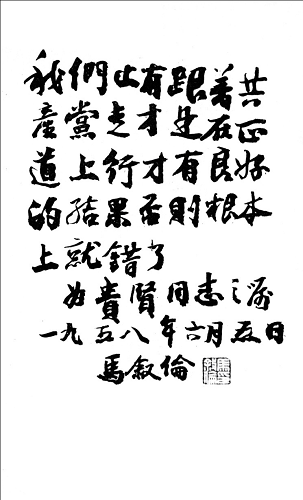 我們止有跟着共
產黨走才是在正
道上行才有良好
的結果否則根本
上就錯了
為貴賢同志之屬
一九五八年六月五日
馬敘倫